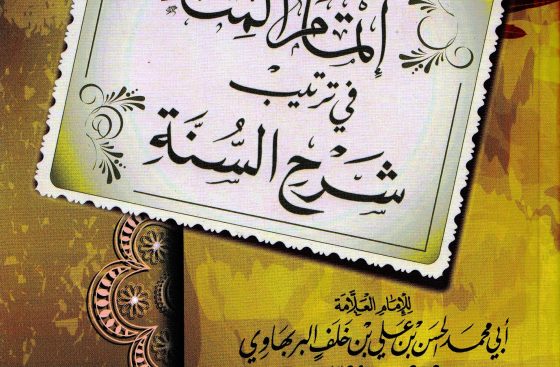 إتمام المنة
في ترتيب
شرح السُّنَّةِ
للإمام العلَّامة
أبي محمد الحسن بن علي بن خلف البربهاوي